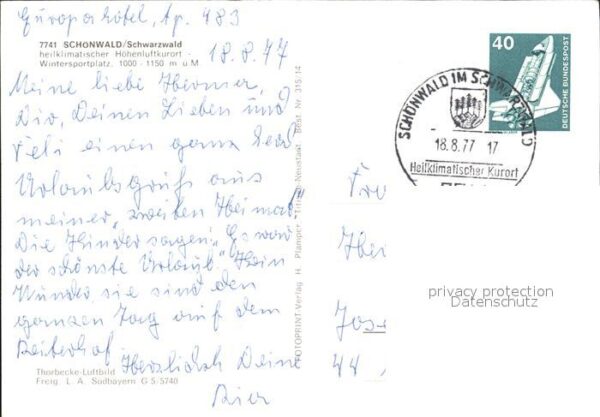 Europahotel, Ap. 983
7741 SCHONWALD/Schwarzwald
heilklimatischer Höhenluftkurort -
Wintersportplatz, 1000 - 1150 m ü M
18.8.77
Meine liebe
Dir, Deinen Lieben und
Feli einen ganz
Urlaubsgruß aus
meiner "zweiten Heimat"
Die Kinder sagen: "Es war
der schönste Urlaub". Kein
Wunder sie sind den
ganzen Tag auf dem
Reiterhof. Herzlichst Deine
Thorbecke-Luftbild
Freig. L. A. Südbayern G 5-5740
FOTOPRINT-Verlag H. Titisee-Neustadt Best. Nr. 315/14
40
DEUTSCHE BUNDESPOST
SCHÖNWALD IM SCHWARZWALD
18.8.77 17
Heilklimatischer Kurort
privacy protection
Datenschutz
44